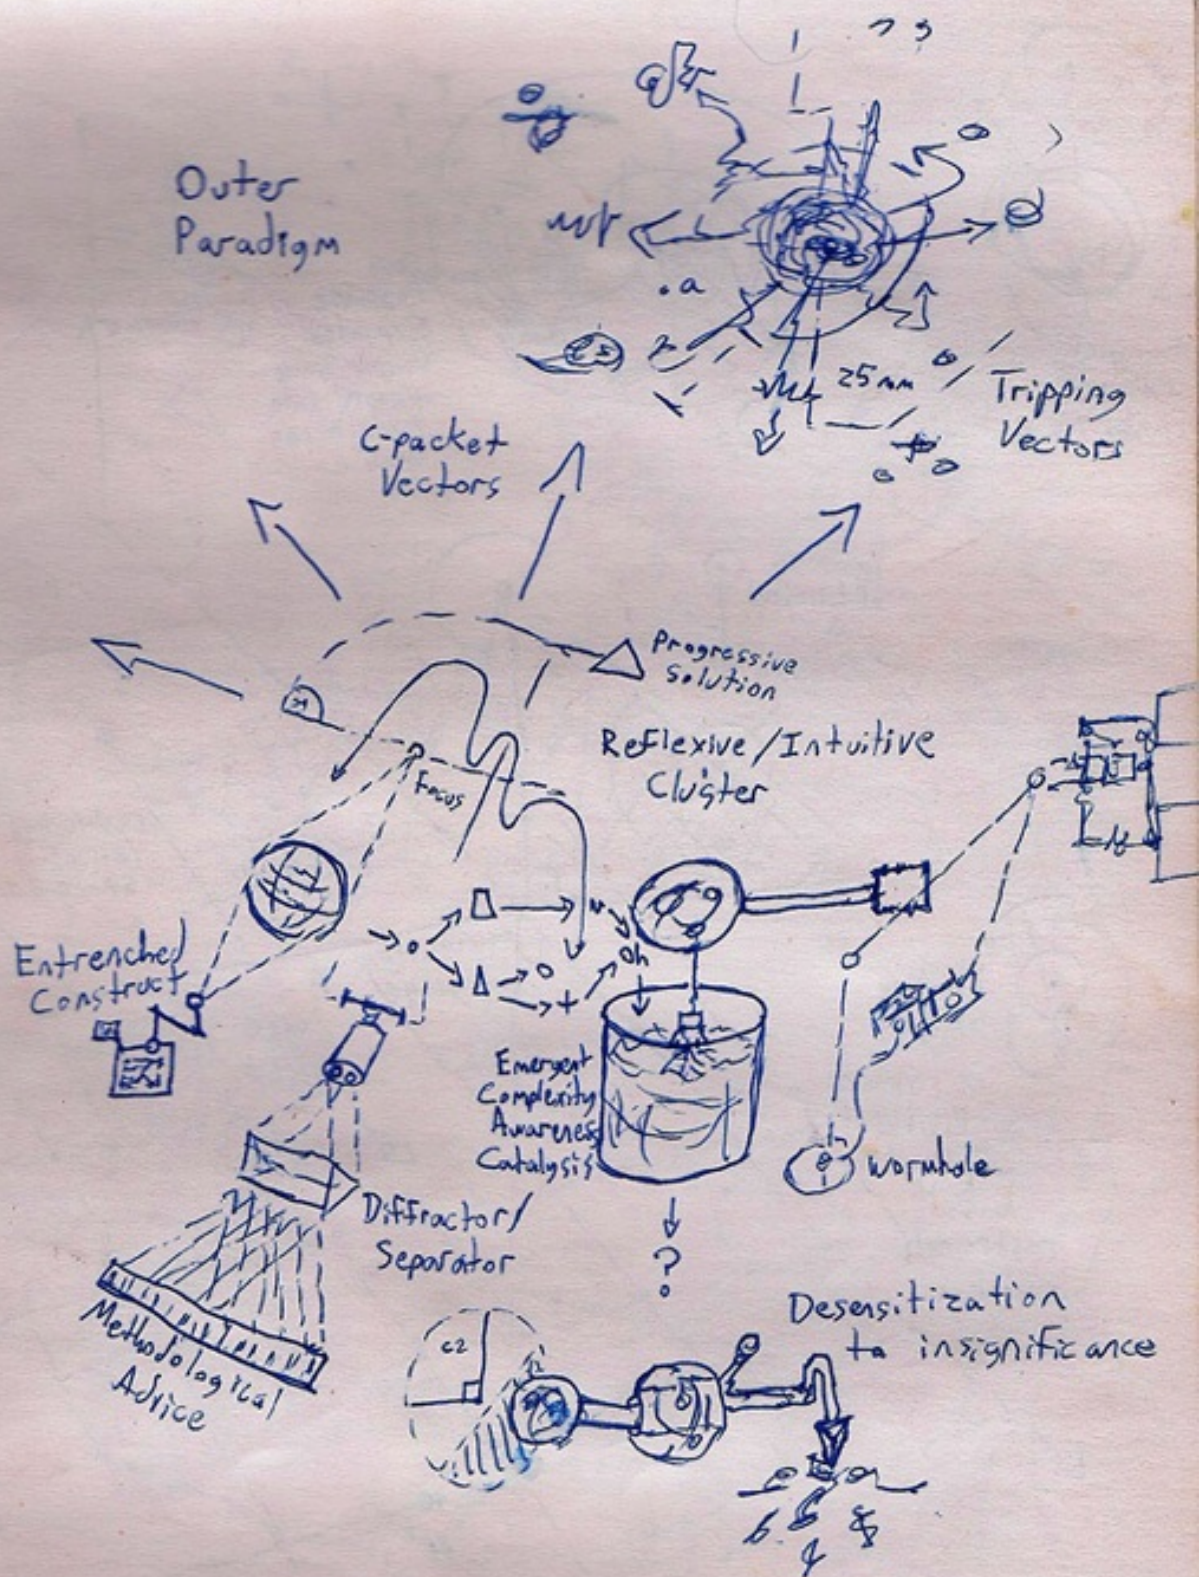 Outer
Paradigm
.a
25mm
Tripping
Vectors
C-packet
Vectors
Progressive
Solution
Reflexive/Intuitive
Cluster
Focus
Entrenched
Construct
Oh
Emergent
Complexity
Awareness
Catalysis
wormhole
Diffractor/
Separator
?
Methodological
Advice
c2
Desensitization
to insignificance